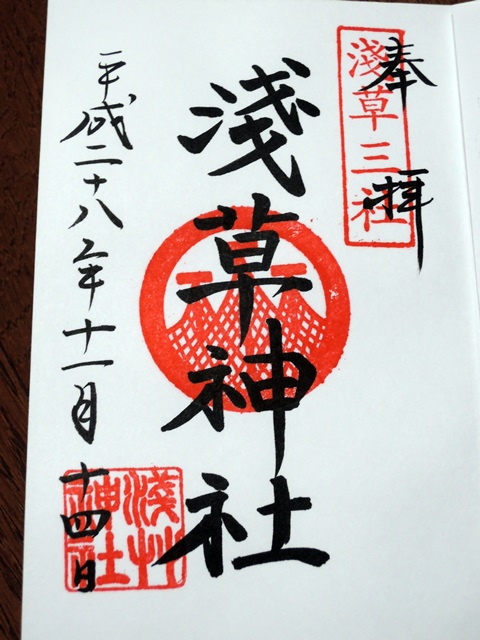 奉拝
淺草三社
淺草神社
平成二十八年十一月十四日
淺草
神社